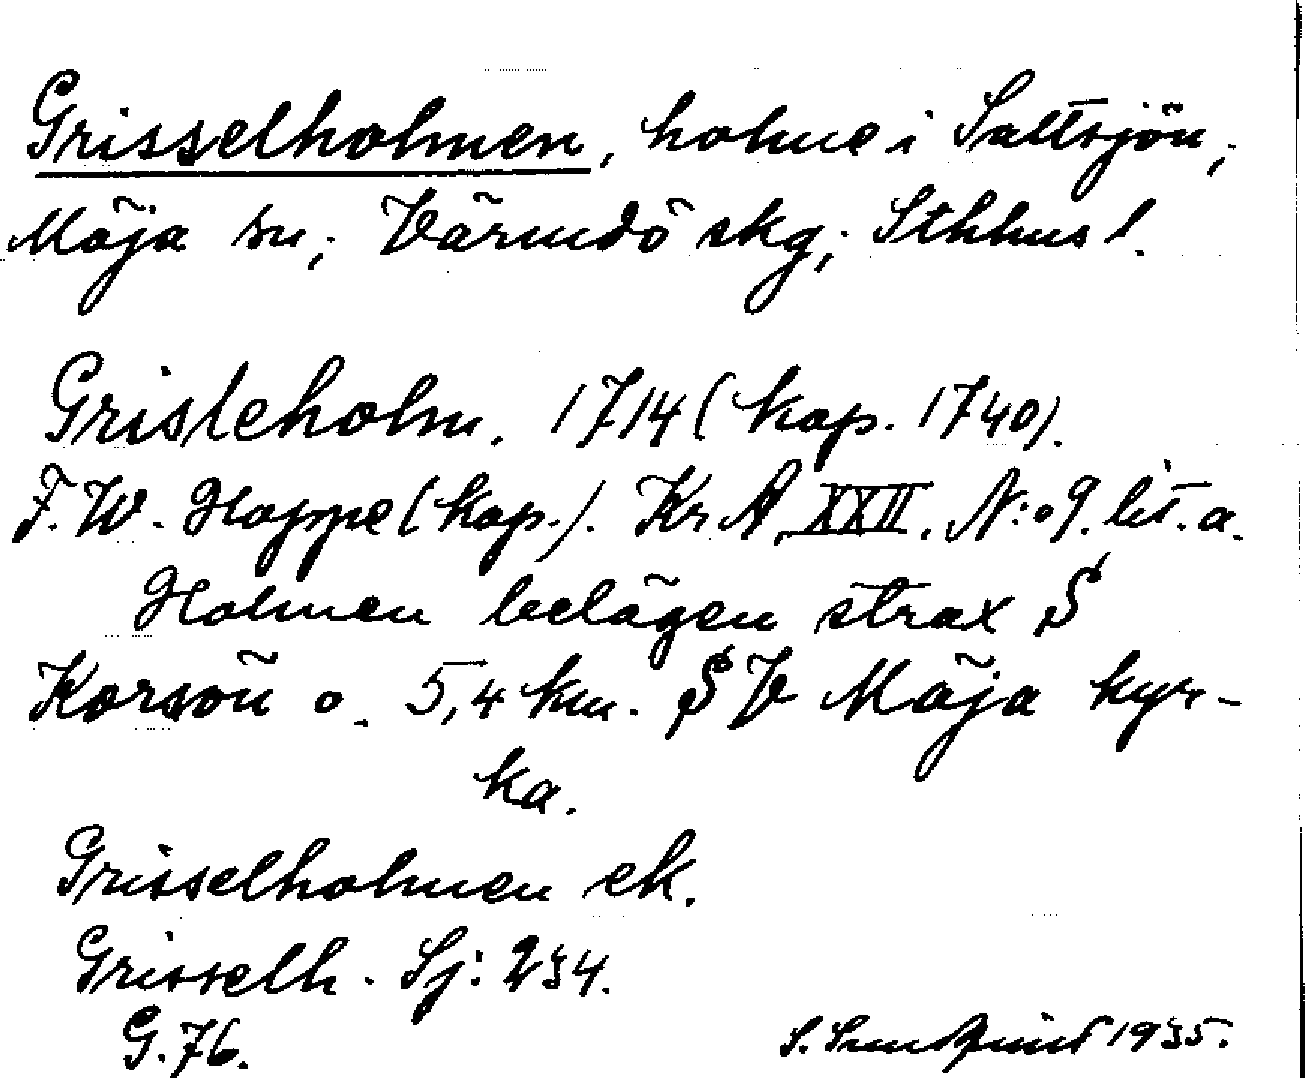 Grisselholmen, holme i Saltsjön,
Möja sn; Värmdö skg; Sthlms l.
Grisleholm. 1714 (kop. 1740).
F. W. Hoppe (kop.). Kr A XXII. N:o 9. lit. a.
Holmen belägen strax S
Korsön o. 5,4 km. S V Möja kyr-
ka.
Grisselholmen ek.
Grisselh. Sj: 234.
G. 76.
S. Sundqvist 1935.